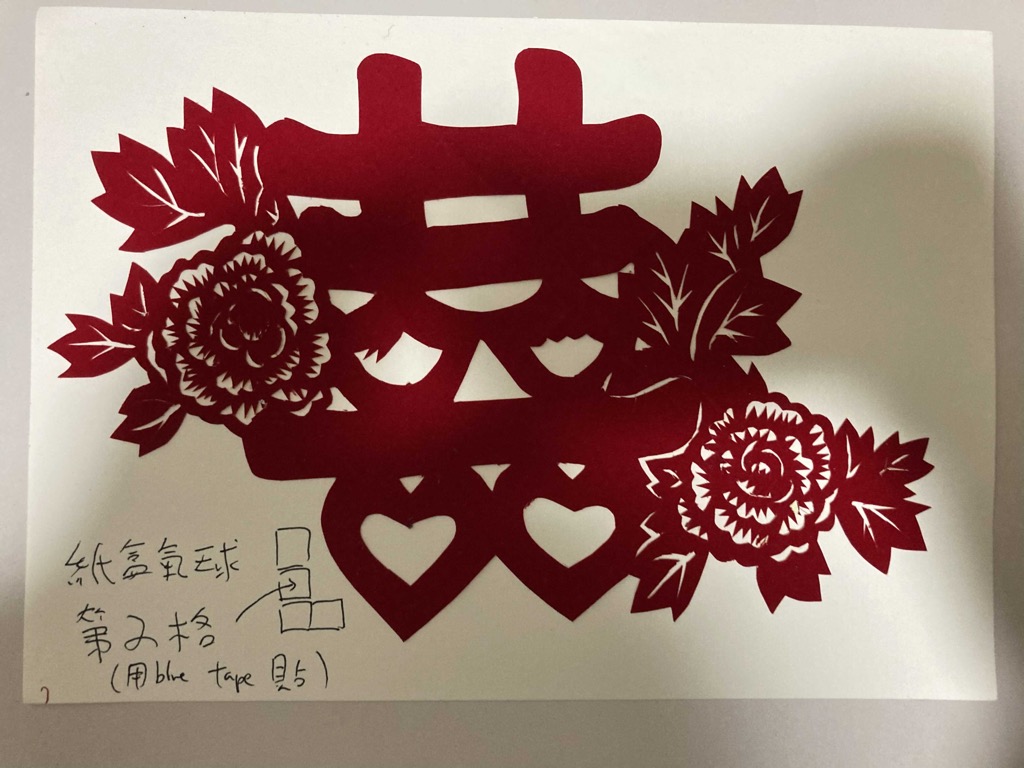 囍
紙盒氣球
第2格
(用blue tape 貼)